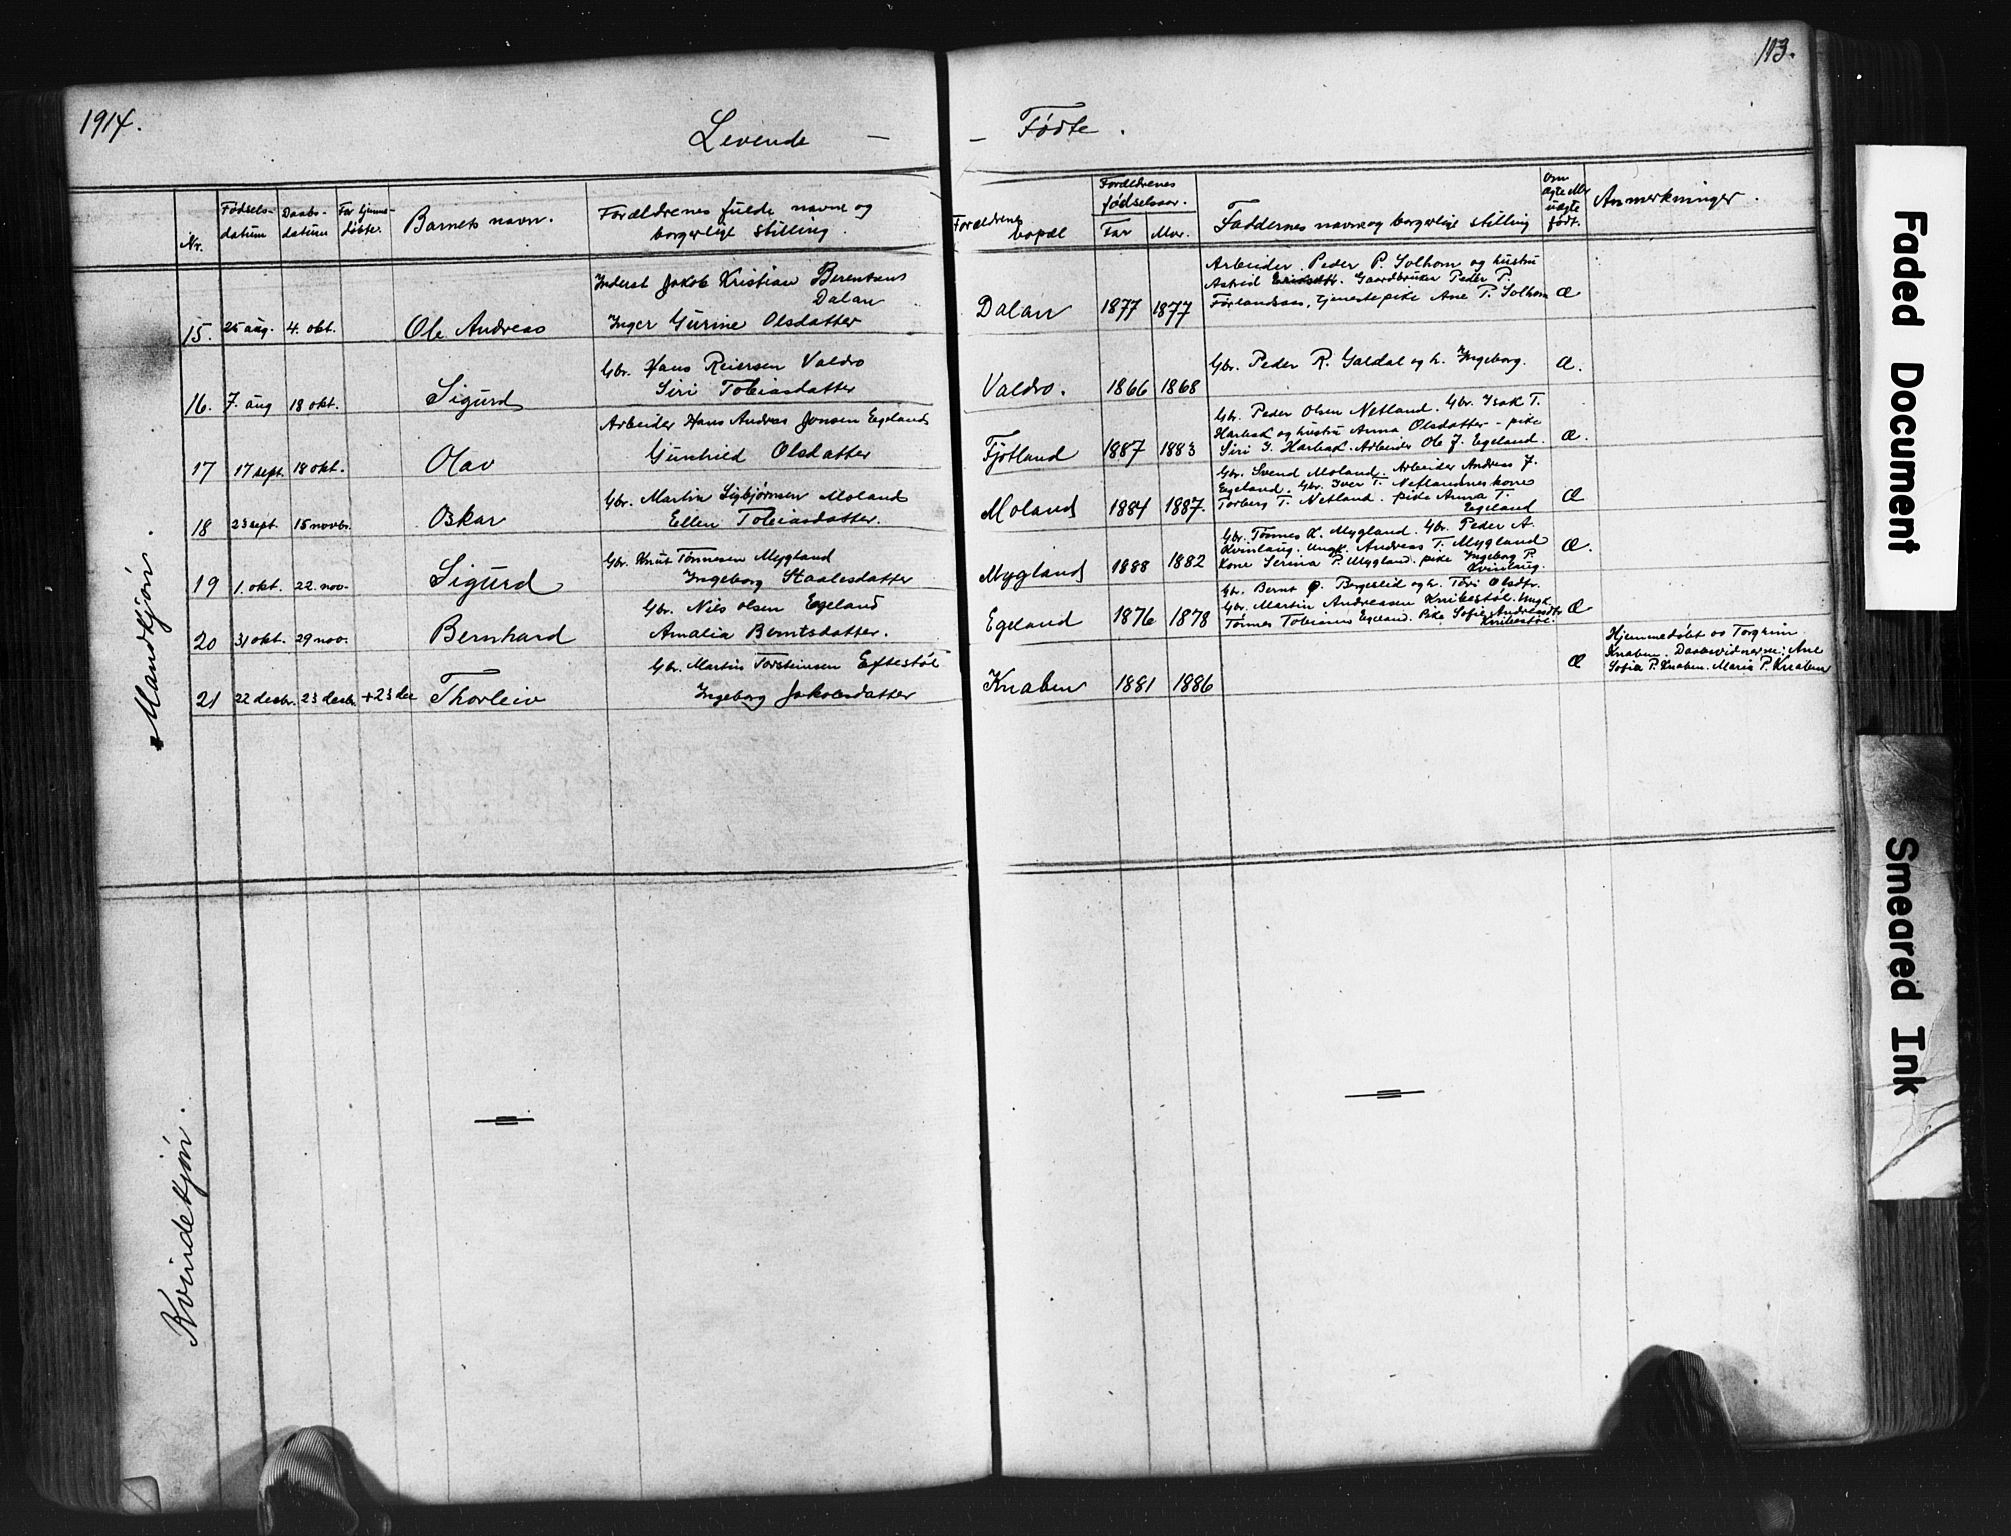 1914.
Levende —
— Fødte.
113.
Nr.
Fødsels-datum
Daabs-datum
For hjemme-døbte
Barnets navn.
Forældrenes fulde navne og borgerlige stilling.
Forældrenes bopæl
Forældrenes fødselsaar.
Far
Mor.
Faddernes navne og borgerlige stilling
Om ægte eller uægte født.
Anmerkninger.
Mandkjøn.
Inderst Jakob Kristian Berentsens
Dalan
15. 25 aug. 4. okt. Ole Andreas Inger Gurine Olsdatter
Dalan 1877 1877
Arbeider Peder P. Solhom og hustru
Astrid Eriksdtr. Gaardbruker Peder P.
Førlandsaas, tjenestepike Ane P. Solhom Æ
Gbr. Hans Reiersen Valdro
16. 7. aug 18 okt. Sigurd Siri Tobiasdatter
Valdro. 1866 1868
Gbr. Peder R. Galdal og h. Ingeborg. Æ.
Arbeider Hans Andreas Jonsen Egeland
17 17 sept. 18 okt. Olav Gunhild Olsdatter
Fjotland 1887 1883
Gbr. Peder Olsen Netland. Gbr. Isak T.
Harbak og hustru Anna Olsdatter - pike
Siri I. Harbak. Arbeider Ole J. Egeland. Æ.
Gbr. Martin Sigbjørnsen Moland
18 23 sept. 15 novbr. Oskar Ellen Tobiasdatter.
Moland 1884 1887.
Gbr. Svend Moland. Arbeider Andreas J.
Egeland. Gbr. Iver T. Netlands kone
Torberg T. Netland. pike Anna T.
Egeland Æ
Gbr. Knut Tønnesen Mygland
19 1. okt. 22. nov. Sigurd Ingeborg Staalesdatter
Mygland 1888 1882
Gbr. Tønnes K. Mygland. Gbr. Peder A.
Kvinlaug. Ungk. Andreas T. Mygland
Kone Serina P. Mygland. pike Ingeborg P.
Kvinlaug. Æ.
Gbr. Nils Olsen Egeland
20 31 okt. 29 nov. Bernhard Amalia Berntsdatter.
Egeland 1876 1878
Gbr. Bernt O. Bergeslid og h. Tori Olsdtr.
Gbr. Martin Andreasen Knibestøl. Ungk.
Tønnes Tobiasen Egeland. Pike Sofie Andreasdtr
Knibestøl. Æ
Gbr. Martin Torsteinsen Eftestøl
21 22 desbr. 23 desbr. + 23 des Thorleiv Ingeborg Jakobsdatter
Knaben 1881 1886
Æ
Hjemmedøbt av Torgrim
Knaben. Daabsvidnerne: Ane
Sofia P. Knaben. Maria P. Knaben
Kvindekjøn.
Faded Document
Smeared Ink